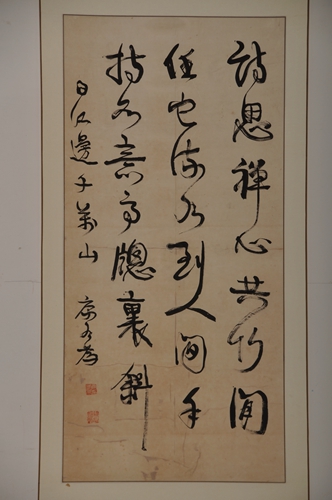 詩思禪心共竹閒
任它流水到人間手
持如意高牕裏斜
日江邊千萬山 康有為